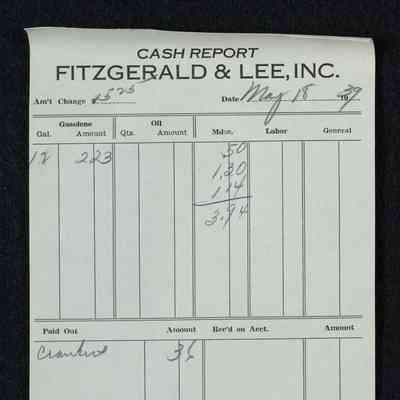 CASH REPORT
FITZGERALD & LEE, INC.
Am't Change 1525 Date May 18 1939
Gasolene Oil
Gal. Amount Qts. Amount Mdse. Labor General
12 2 23 50
1,30
1,14
3.94
Paid Out Amount Rec'd on Acct. Amount
36